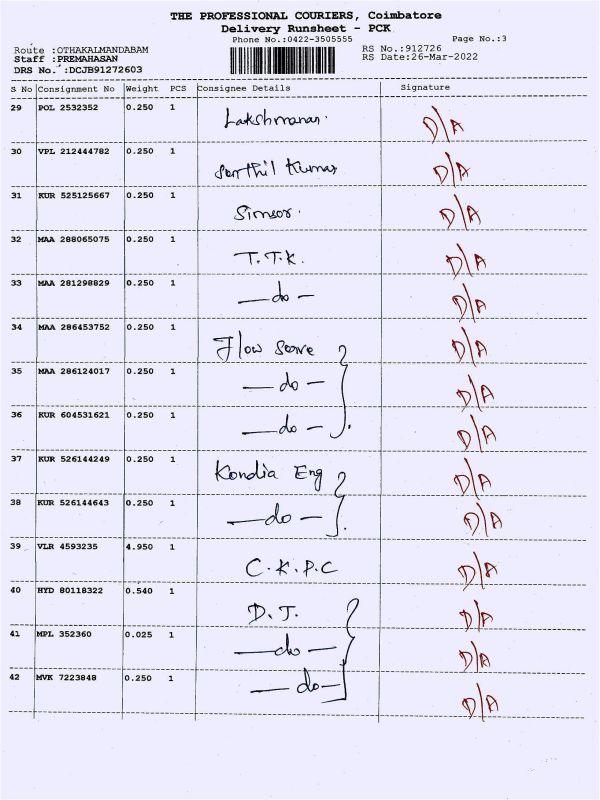 THE PROFESSIONAL COURIERS, Coimbatore
Delivery Runsheet - PCK
Phone No.:0422-3505555 Page No.:3
Route :OTHAKALMANDABAM RS No.:912726
Staff :PREMAHASAN RS Date:26-Mar-2022
DRS No. :DCJB91272603
S No Consignment No Weight PCS Consignee Details Signature
29 POL 2532352 0.250 1 Lakshmanan. D/A
30 VPL 212444782 0.250 1 Senthil Kumar D/A
31 KUR 525125667 0.250 1 D/A
32 MAA 288065075 0.250 1 T.T.K. D/A
33 MAA 281298829 0.250 1 —do— D/A
34 MAA 286453752 0.250 1 Flow serve D/A
35 MAA 286124017 0.250 1 —do— D/A
36 KUR 604531621 0.250 1 —do— D/A
37 KUR 526144249 0.250 1 Kondia Eng D/A
38 KUR 526144643 0.250 1 —do— D/A
39 VLR 4593235 4.950 1 C.K.P.C D/A
40 HYD 80118322 0.540 1 D.J. D/A
41 MPL 352360 0.025 1 —do— D/A
42 MVK 7223848 0.250 1 —do— D/A